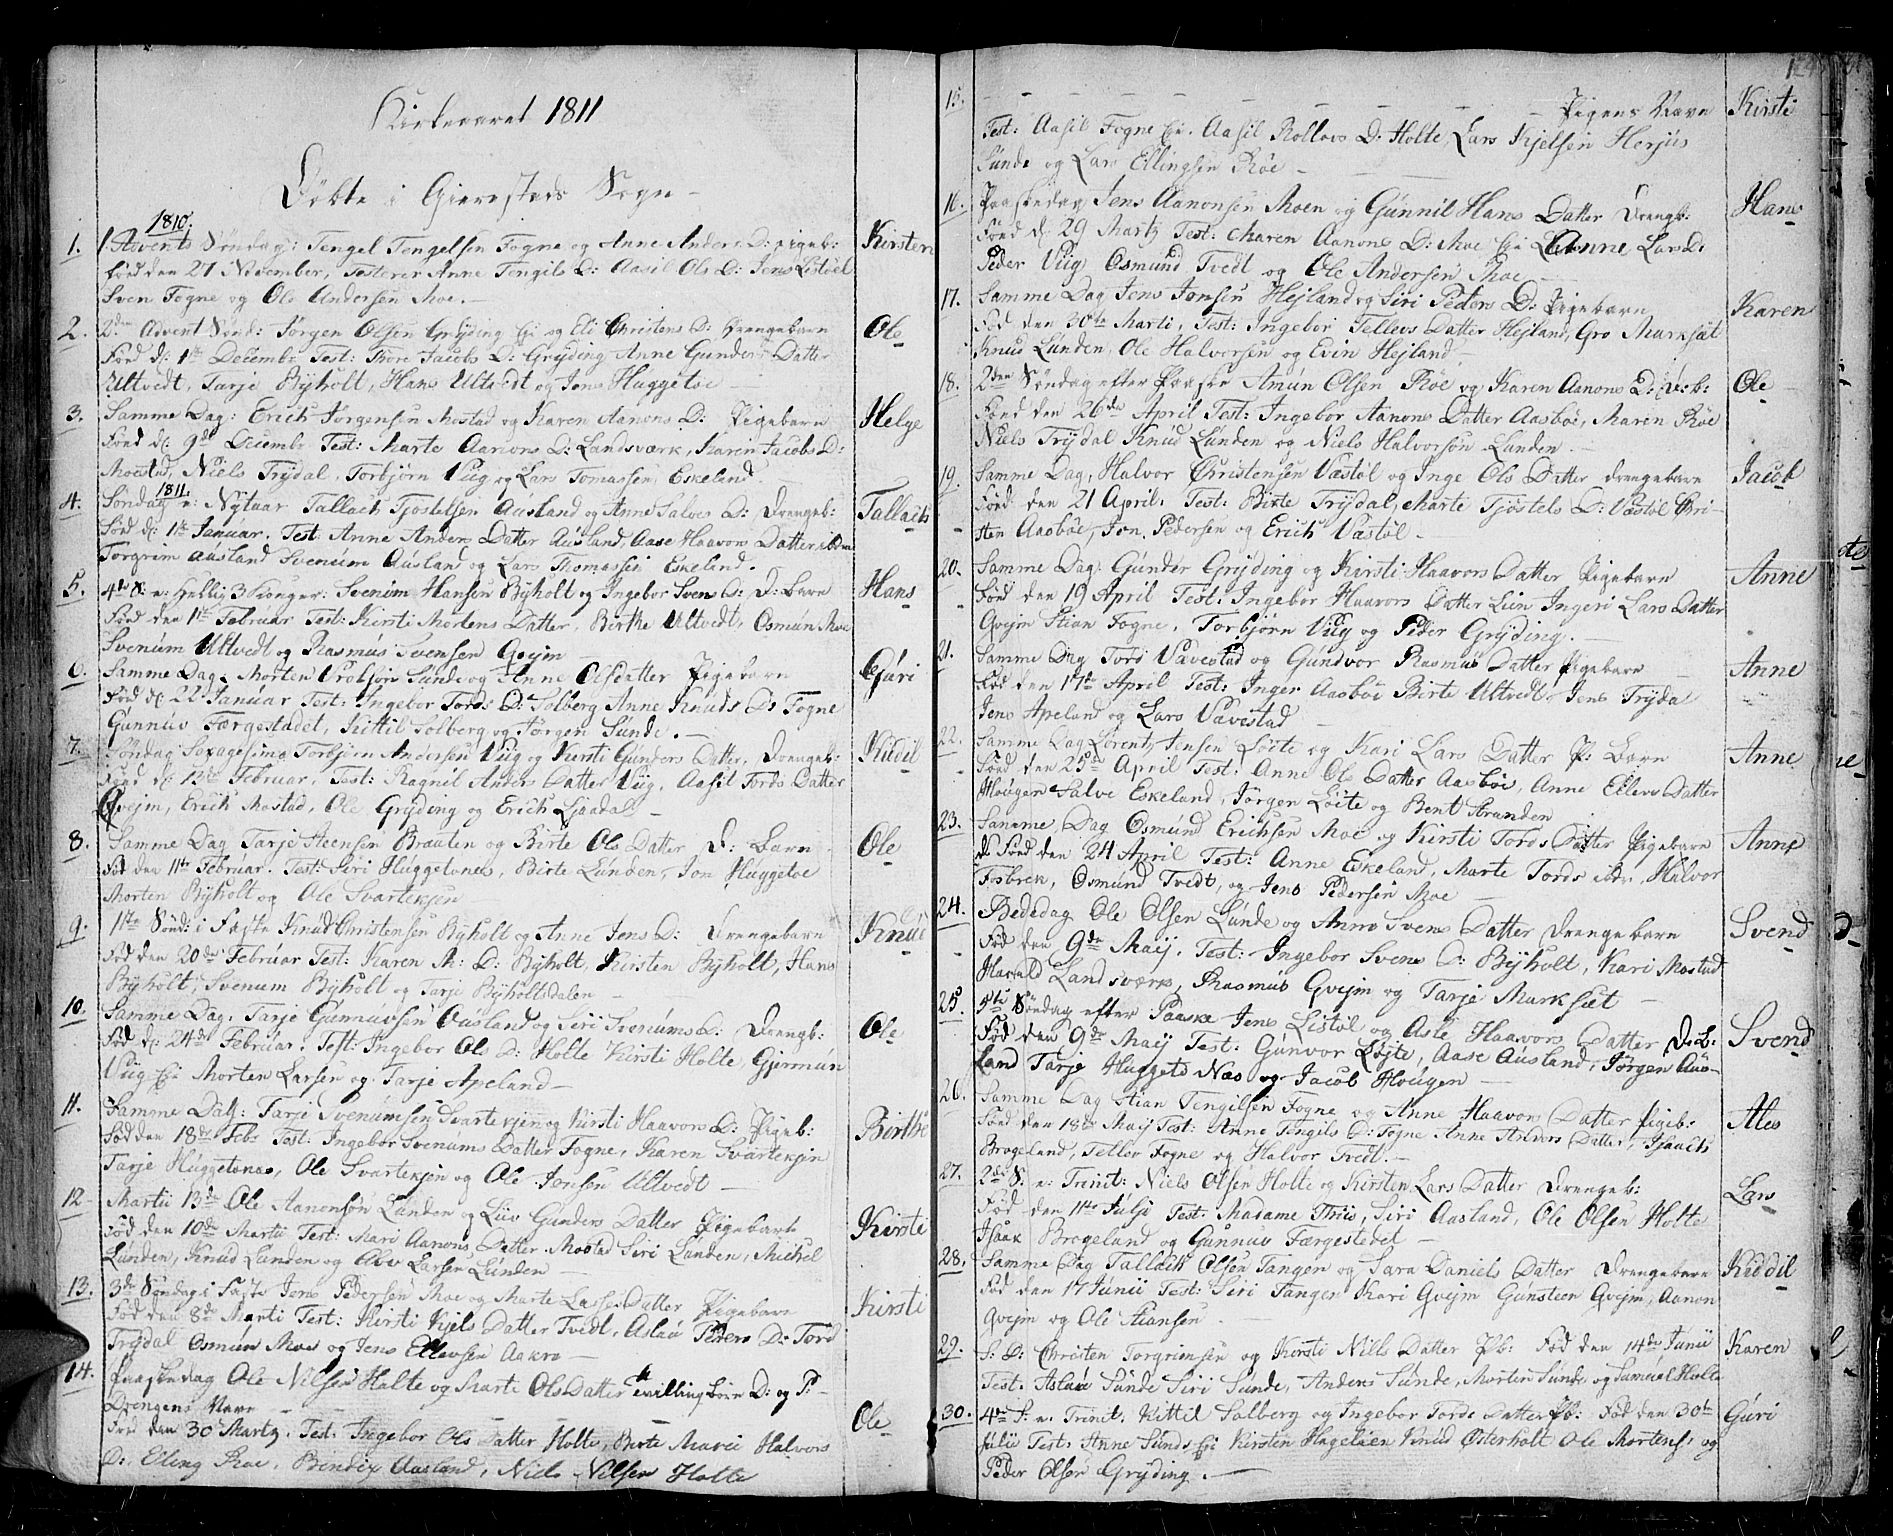 Kirkeaaret 1811
Döbte i Gierestads Sogn
1810.
1. 1. Advents Söndag: Tengel Tengelsen Fogne og Anne Anders D: pigeb: Kirsten
född den 27 November, Testerer Anne Tengils D: Aasil Ols D: Jens Listöel
Sven Fogne og Ole Andersen Moe.
2. 2den Advent Sönd: Jörgen Olsen Grÿding og Eli Christens D: Drengebarn Ole
Född d: 1te Decembr Test: Tore Jacobs D: Grÿding Anne Gunders Datter
Ultvedt, Tarje Bÿholt, Hans Ultvedt og Jens Huggetoe
3. Samme Dag: Erich Jörgensen Mostad og Karen Aanons D: Pigebarn Helge
Född d: 9de Decembr Test: Marte Aanons D: Landsværk, Karen Jacobs D:
Moestad, Niels Trÿdal, Torbjörn Viig og Lars Tomassen Eskeland.
4. Söndag 1811 e: Nÿtaar Tallach Tjöstelsen Ausland og Anne Salves D: Drengeb: Tallach
Född d: 1te Januar. Test: Anne Anders Datter Ausland, Aase Haavors Datter ibdm
Torgrim Ausland Svenum Ausland og Lars Thomassen Eskeland.
5. 4de S: e: Hellig 3 Konger: Svenum Hansen Bÿholt og Ingebor Svens D: D: Barn Hans
Född den 1te Februar Test: Kirsti Mortens Datter, Birthe Ultvedt, Osmun Moe
Svenum Ultvedt og Rasmus Svensen Gvejm
6. Samme Dag Morten Erolsön Sunde og Anne Olsdatter Pigebarn Guri
Född d: 22 Januar Test: Ingebor Tords D: Solberg Anne Knuds D: Fogne
Gunnuv Færgestadet, Kittil Solberg og Jörgen Sunde.
7. Söndag Sexagesima Torbjörn Andersen Viig og Kirsti Gunders Datter, Drengeb: Kiddil
Född d: 12te Februar, Test: Ragnil Anders Datter Viig, Aasil Tords Datter
Gvejm, Erich Mostad, Ole Grÿding og Erich Ljaadal
8. Samme Dag Tarje Steensen Brauten og Birte Ols Datter D: Barn Ole
Föd den 11te Februar. Test: Siri Huggetones, Birte Lunden, Jon Huggetoe
Morten Bÿholt og Ole Svarteksen
9. 1ste Sönd: i Faste Knud Christensen Bÿholt og Anne Jens D: Drengebarn Knud
Föd den 20de Februar Test: Karen M: D: Bÿholt, Kirsten Bÿholt, Hans
Bÿholt, Svenum Bÿholt og Tarje Bÿholtsdalen
10. Samme Dag. Tarje Gunnuvsen Ousland og Siri Svenums D: Drengb: Ole
Föd d: 24de Februar. Test: Ingebor Ols D: Holte Kirsti Holte, Gjermun
Viig Morten Larsen og Tarje Apeland
11. Samme Dag: Tarje Svenumsen Svartekjen og Kirsti Haavors D: Pigeb: Birthe
Föd den 18de Febr Test: Ingebor Svenums Datter Fogne, Karen Svartekjen
Tarje Huggetones, Ole Svartekjen og Ole Jensen Ultvedt
12. Martii 13de Ole Aanonsön Lunden og Liv Gunders Datter Pigebarn Kirsti
Föd den 10de Martii Test: Mari Aanons Datter Mostad Siri Lunden, Michel
Lunden, Knud Lunden og Olav Larsen Lunden
13. 3de Söndag i Faste Jens Pedersen Moe og Marte Lasses Datter Pigebarn Kirsti
Föd den 8de Marti Test: Kirsti Kjels Datter Tvedt, Aslau Peders D: Tord
Trÿdal Osmun Moe og Jens Ellevsen Aakre
14. Paaskedag Ole Nilsen Holte og Marte Ols Datter tvillingbörn D: og P:
Drengens Navn
Föd den 30 Martz. Test: Ingebor Ols Datter Holte, Birte Marie Halvors Ole
D: Eling Roe, Bendix Ausland, Niels Nilsen Holte
124
15. Pigens Navn Kirsti
Test: Aasil Fogne Aasil Rollevs D: Holte, Lars Kjelsen Herjus
Sunde og Lars Ellingsen Röe
16. Paaskedag Jens Aanonsen Moen og Gunnil Hans Datter Drengb: Hans
Född d: 29 Martz Test: Maren Aanons D: Moe Anne Lars D:
Peder Viig Osmund Tvedt og Ole Andersen Moe
17. Samme Dag Jens Jonsen Hejland og Siri Peders D: Pigebarn Karen
Föd den 30te Marti, Test: Ingebor Tellevs Datter Hejland, Gro Marksæt
Knud Lunden, Ole Halvorsen og Evin Hejland
18. 2den Söndag efter Paaske Amun Olsen Röe og Karen Aanons D: D:b: Ole
Född den 26de April Test: Ingebor Aanons Datter Aasböe, Maren Röe
Niels Trÿdal Knud Lunden og Niels Halvorsön Lunden
19. Samme Dag, Halvor Christensen Væstöl og Inge Ols Datter Drengebarn Jacob
Född den 21 April. Test: Birte Trÿdal, Marte Tjöstels D: Væstöl Chri-
sten Aasböe, Jon Pedersen og Erich Væstöl
20. Samme Dag: Gunder Grÿding og Kirsti Haavors Datter Pigebarn Anne
Född den 19 April Test: Ingebor Haavors Datter Lien Ingeri Lars Datter
Gvejm Stian Fogne, Torbjörn Viig og Peder Grÿding.
21. Samme Dag Tord Vavestad og Gundvor Rasmus Datter Pigebarn Anne
Föd den 17te April Test: Inger Aasböe Birte Ultvedt, Jens Trÿdal
Jens Apeland og Lars Vavestad
22. Samme Dag Lorentz Jensen Löite og Kari Lars Datter P: Barn Anne
Född den 25de April Test: Anne Ols Datter Aasböe, Anne Ellevs Datter
Hougen Salve Eskeland, Jörgen Löite og Bent Stranden
23. Samme Dag Osmund Erichsen Moe og Kirsti Tords Datter Pigebarn Anne
Född den 24 April Test: Anne Eskeland, Marte Tords ibdm, Halvor
Fosbrek, Osmund Tvedt, og Jens Pedersen Moe
24. Bededag Ole Olsen Lunde og Anne Svens Datter Drengebarn Svend
Föd den 9de Maij. Test: Ingebor Svens D: Bÿholt, Kari Mostad
Harald Landsværk, Rasmus Gvejm og Tarje Marksæt
25. 5te Söndag efter Paaske Jens Listöl og Asle Haavors Datter D:B: Svend
Föd den 9de Maij Test: Gunvor Löjte, Aase Ausland, Jörgen Aus-
land Tarje Huggeto Næs og Jacob Hougen
26. Samme Dag Stian Tengilsen Fogne og Anne Haavors Datter Pigeb: Ales
Född den 18de Maij Test: Anne Tengils D: Fogne Anne Datter, Isaach
Brogeland, Tellev Fogne og Halvor Tvedt.
27. 2de S: e: Trinit: Niels Olsen Holte og Kirsten Lars Datter Drengeb: Lars
Föd den 11te Julji Test: Madame Thiis, Siri Aasland, Ole Olsen Holte
Isaak Brogeland og Gunnuv Færgestedet
28. Samme Dag Tallach Olsen Tangen og Sara Daniels Datter Drengebarn Kiddil
Föd den 17 Junii Test: Siri Tangen Kari Gvejm Gunsteen Gvejm, Aanon
Gvejm og Ole Stiansen
29. S: D: Christen Torgrimsen og Kirsti Nills Datter Pb: Föd den 14de Junii Karen
Test. Aslau Sunde Siri Sunde, Anders Sunde, Morten Sunde og Samuel Holte
30. 4de S: e: Trinit. Kittil Solberg og Ingebor Tords Datter Pb: Föd den 30te Guri
Julii Test: Anne Sunds Kirsten Hageloen Knud Österholt Ole Mortens: og
Peder Olsen Grÿding.